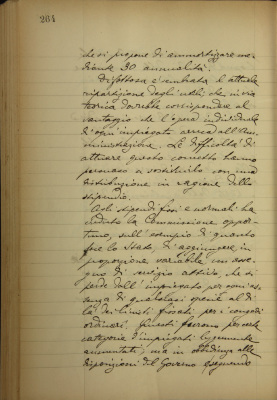 264
che si propone di ammortizzare me-
diante 30 annualità.
Difettosa è sembrata l'attuale
ripartizione degli utili, che in via
teorica dovrebbe corrispondere al
vantaggio che l'opera individuale
d'ogni impiegato arreca all'Am-
ministrazione. Le difficoltà di
attuare questo concetto hanno
persuaso a sostituirlo con una
distribuzione in ragione dello
stipendio.
Agli stipendi fissi e normali ha
creduto la Commissione oppor-
tuno, sull'esempio di quanto
fece lo Stato, d'aggiungere in
proporzione variabile un asse-
gno di servizio attivo, che si
perde dall'impiegato per ogni as-
senza di qualsiasi specie al di
là dei limiti fissati per i congedi
ordinari. Questi furono per certe
categorie d'impiegati
aumentati; ma in obbedienza alle
disposizioni del Governo